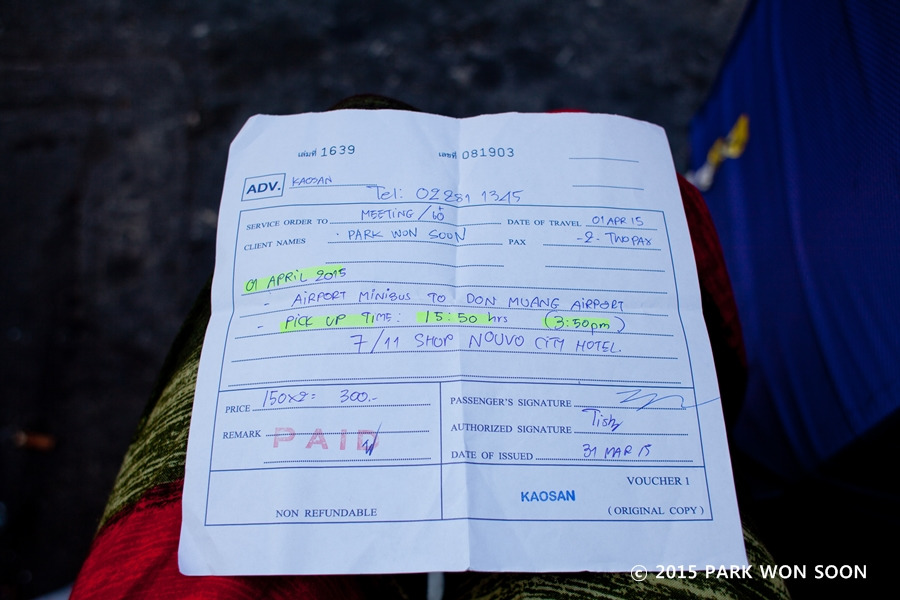 เล่มที่ 1639 เลขที่ 081903
ADV. KAOSAN
Tel: 02281 1345
SERVICE ORDER TO MEETING/ DATE OF TRAVEL 01 APR 15
CLIENT NAMES PARK WON SOON PAX -2- TWO PAX
01 APRIL 2015
- AIRPORT MINIBUS TO DON MUANG AIRPORT
- PICK UP TIME: 15:50 hrs (3:50pm)
7/11 SHOP NOUVO CITY HOTEL.
PRICE 150x2= 300.-
PASSENGER'S SIGNATURE
REMARK PAID
AUTHORIZED SIGNATURE
DATE OF ISSUED 31 MAR 15
NON REFUNDABLE
KAOSAN
VOUCHER 1
(ORIGINAL COPY)
© 2015 PARK WON SOON